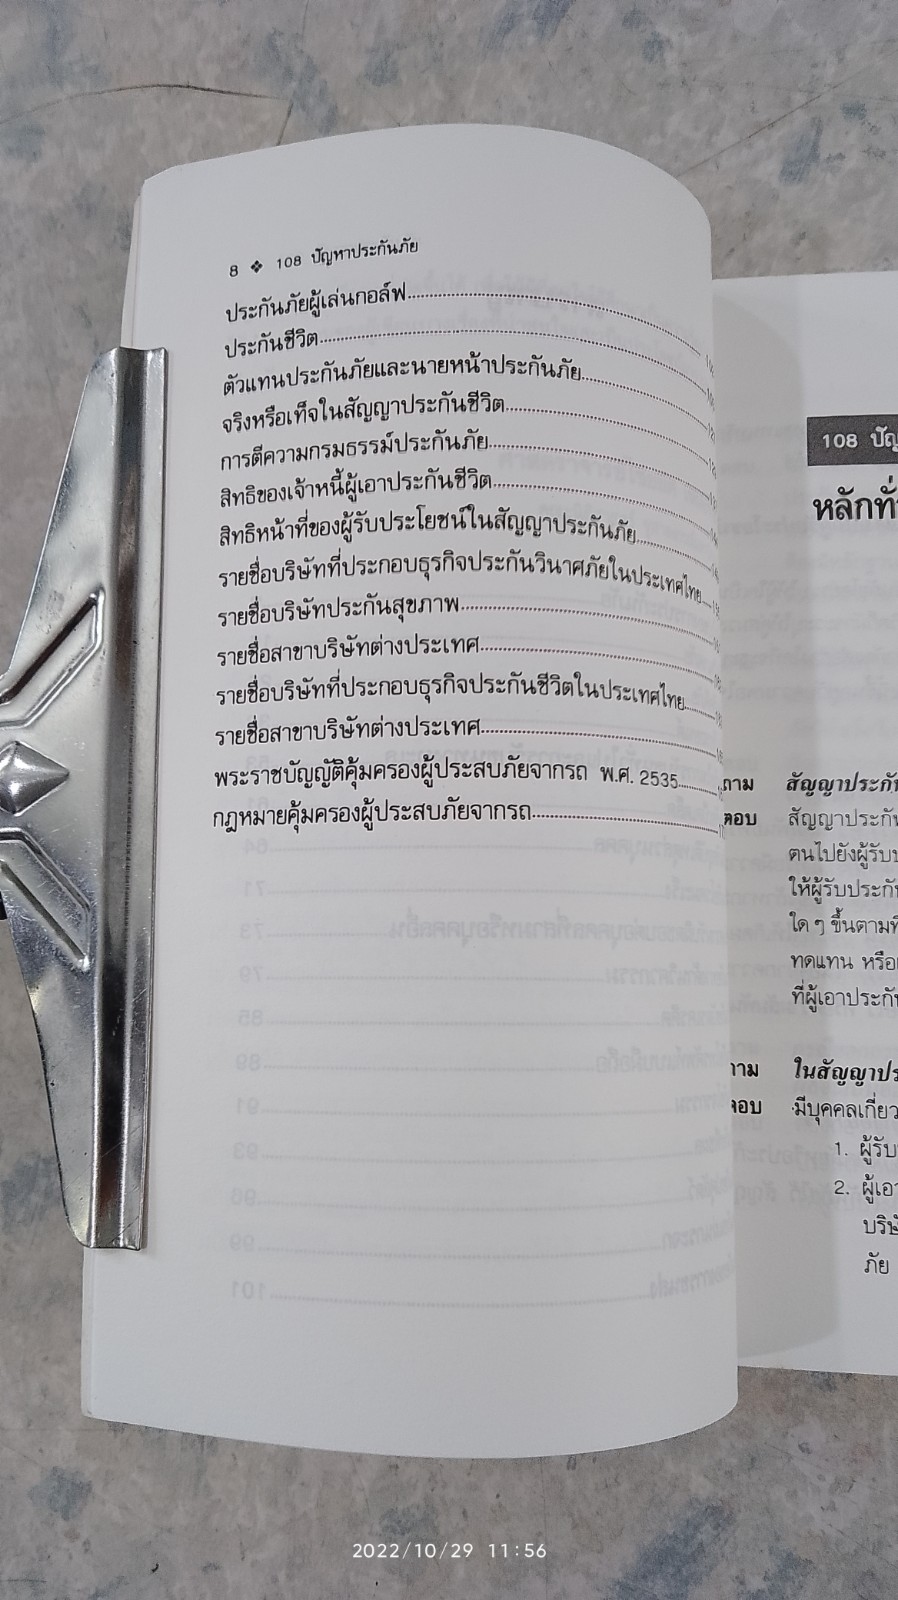 8 ❖ 108 ปัญหาประกันภัย
ประกันภัยผู้เล่นกอล์ฟ
ประกันชีวิต
ตัวแทนประกันภัยและนายหน้าประกันภัย
จริงหรือเท็จในสัญญาประกันชีวิต
การตีความกรมธรรม์ประกันภัย
สิทธิของเจ้าหนี้ผู้เอาประกันชีวิต
สิทธิหน้าที่ของผู้รับประโยชน์ในสัญญาประกันภัย
รายชื่อบริษัทที่ประกอบธุรกิจประกันวินาศภัยในประเทศไทย
รายชื่อบริษัทประกันสุขภาพ
รายชื่อสาขาบริษัทต่างประเทศ
รายชื่อบริษัทที่ประกอบธุรกิจประกันชีวิตในประเทศไทย
รายชื่อสาขาบริษัทต่างประเทศ
พระราชบัญญัติคุ้มครองผู้ประสบภัยจากรถ พ.ศ. 2535
กฎหมายคุ้มครองผู้ประสบภัยจากรถ
108
หลักทั่
สัญญาประกัน
ตอบ สัญญาประกัน
ตนไปยังผู้รับ
ให้ผู้รับประกัน
ใด ๆ ขึ้นตามที่
ทดแทน หรือ
ที่ผู้เอาประกัน
ในสัญญาประ
มีบุคคลเกี่ยว
1. ผู้รับ
2. ผู้เอา
บริษั
ภัย
2022/10/29 11:56